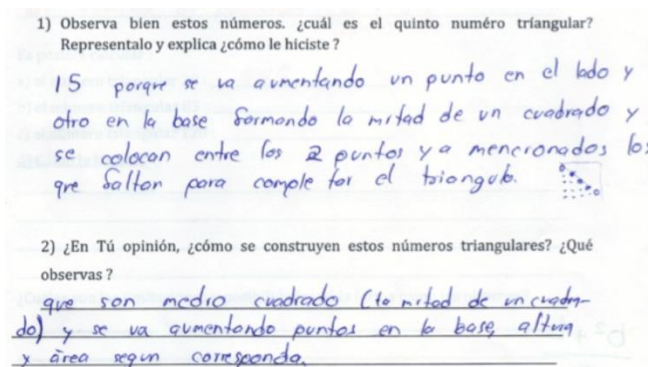 1) Observa bien estos números. ¿cuál es el quinto numéro tríangular?
Representalo y explica ¿cómo le hiciste ?
15 porque se va aumentando un punto en el lado y
otro en la base formando la mitad de un cuadrado y
se colocan entre los 2 puntos ya mencionados los
que faltan para comple tar el triangulo.
2) ¿En Tú opinión, ¿cómo se construyen estos números triangulares? ¿Qué
observas ?
que son medio cuadrado (la mitad de un cuadra-
do) y se va aumentando puntos en la base, altura
y área segun corresponda.